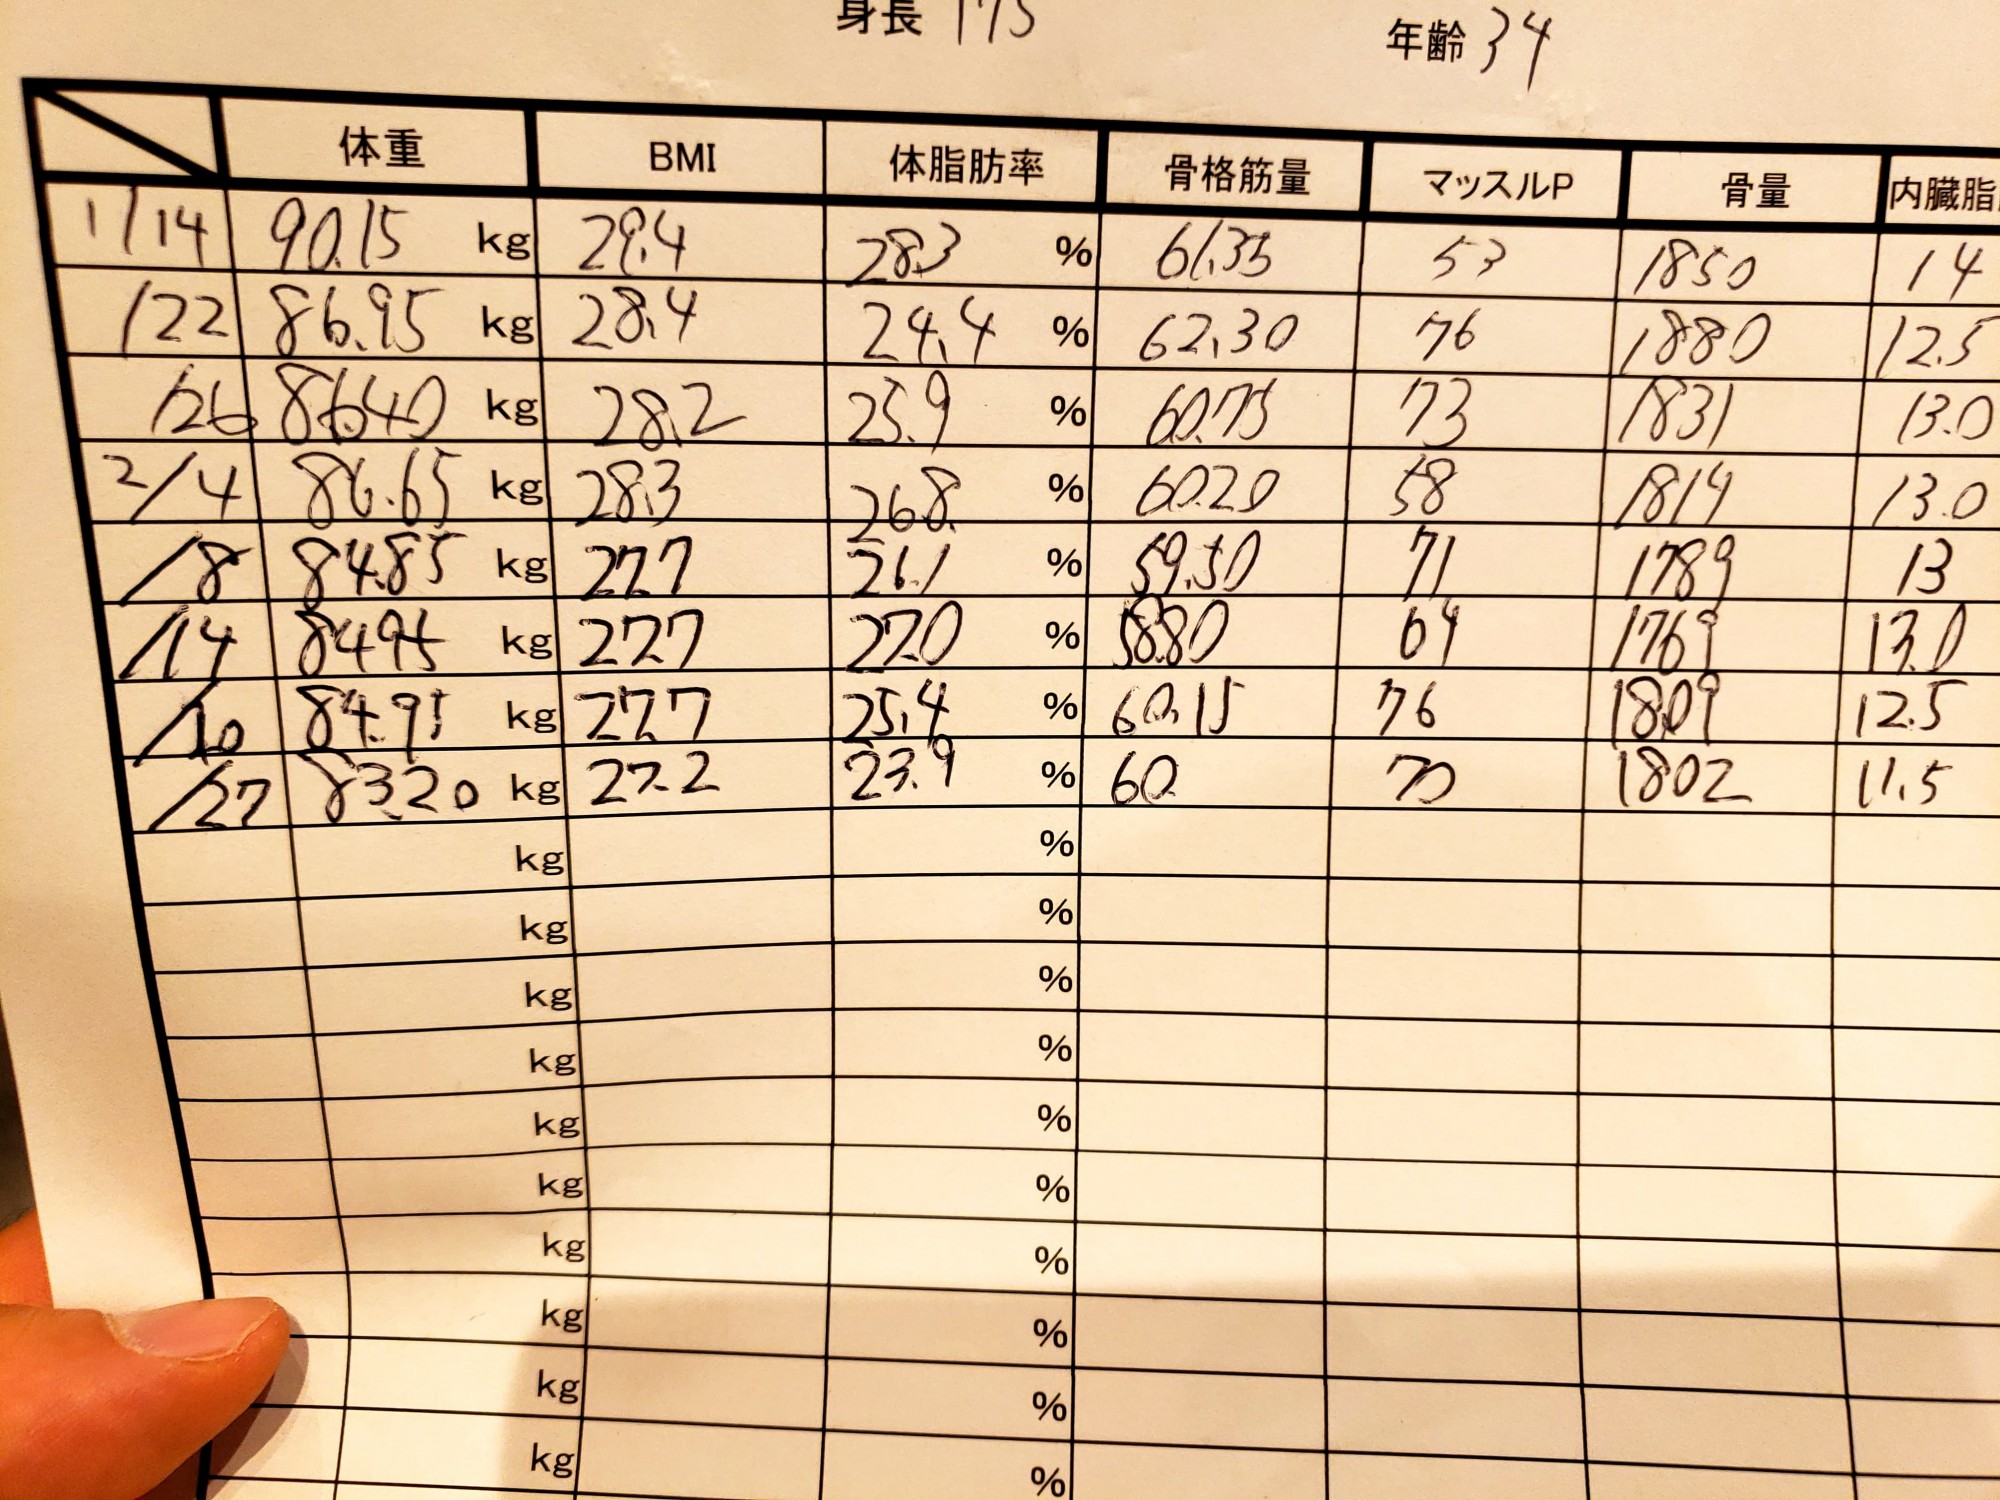 身長 175 年齢 34
体重 BMI 体脂肪率 骨格筋量 マッスルP 骨量 内臓脂
1/14 90.15 kg 29.4 28.3 % 61.35 53 1850 14
/22 86.95 kg 28.4 24.4 % 62.30 76 1880 12.5
/26 86.40 kg 28.2 25.9 % 60.75 73 1831 13.0
2/4 86.65 kg 28.3 26.8 % 60.20 58 1814 13.0
/8 84.85 kg 27.7 26.1 % 59.50 71 1789 13
/14 84.95 kg 27.7 27.0 % 58.80 64 1769 13.0
84.95 kg 27.7 25.4 % 60.15 76 1809 12.5
/27 83.20 kg 27.2 23.9 % 60 70 1802 11.5
kg %
kg %
kg %
kg %
kg %
kg %
kg %
kg %
kg %
kg %